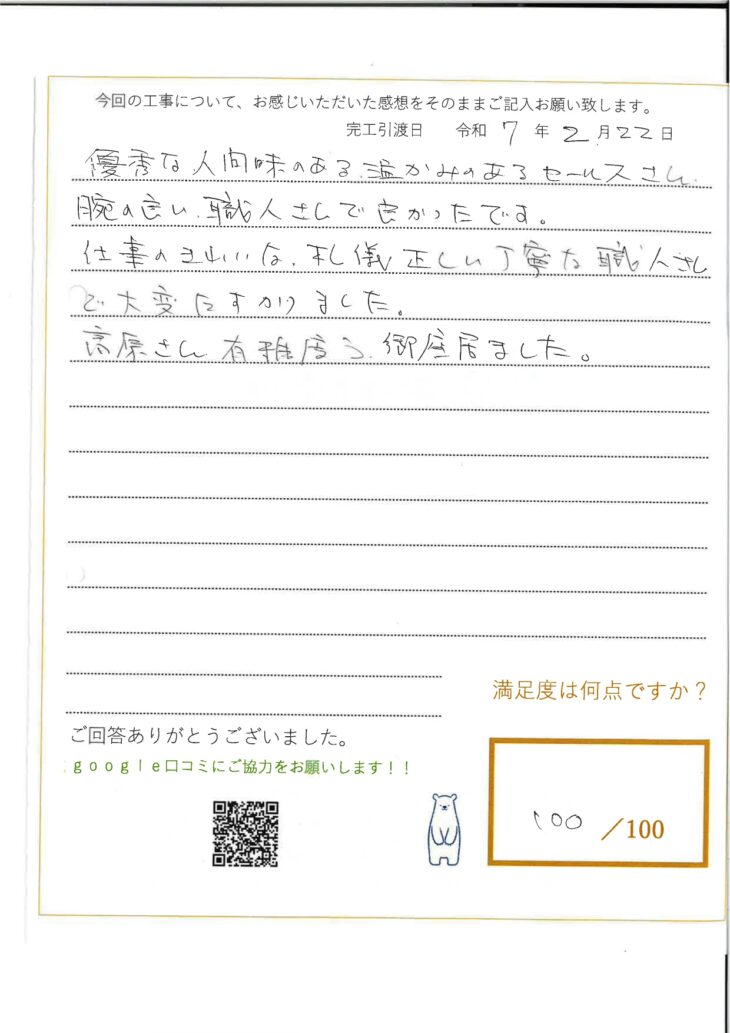 今回の工事について、お感じいただいた感想をそのままご記入お願い致します。
完工引渡日 令和 7 年 2 月 22 日
優秀な人間味のある、温かみのあるセールスさん、
腕の良い、職人さんで良かったです。
仕事のきれいな、礼儀正しい丁寧な職人さん
で大変たすかりました。
高原さん有難度う、御座居ました。
満足度は何点ですか？
ご回答ありがとうございました。
google口コミにご協力をお願いします！！
100 ／100